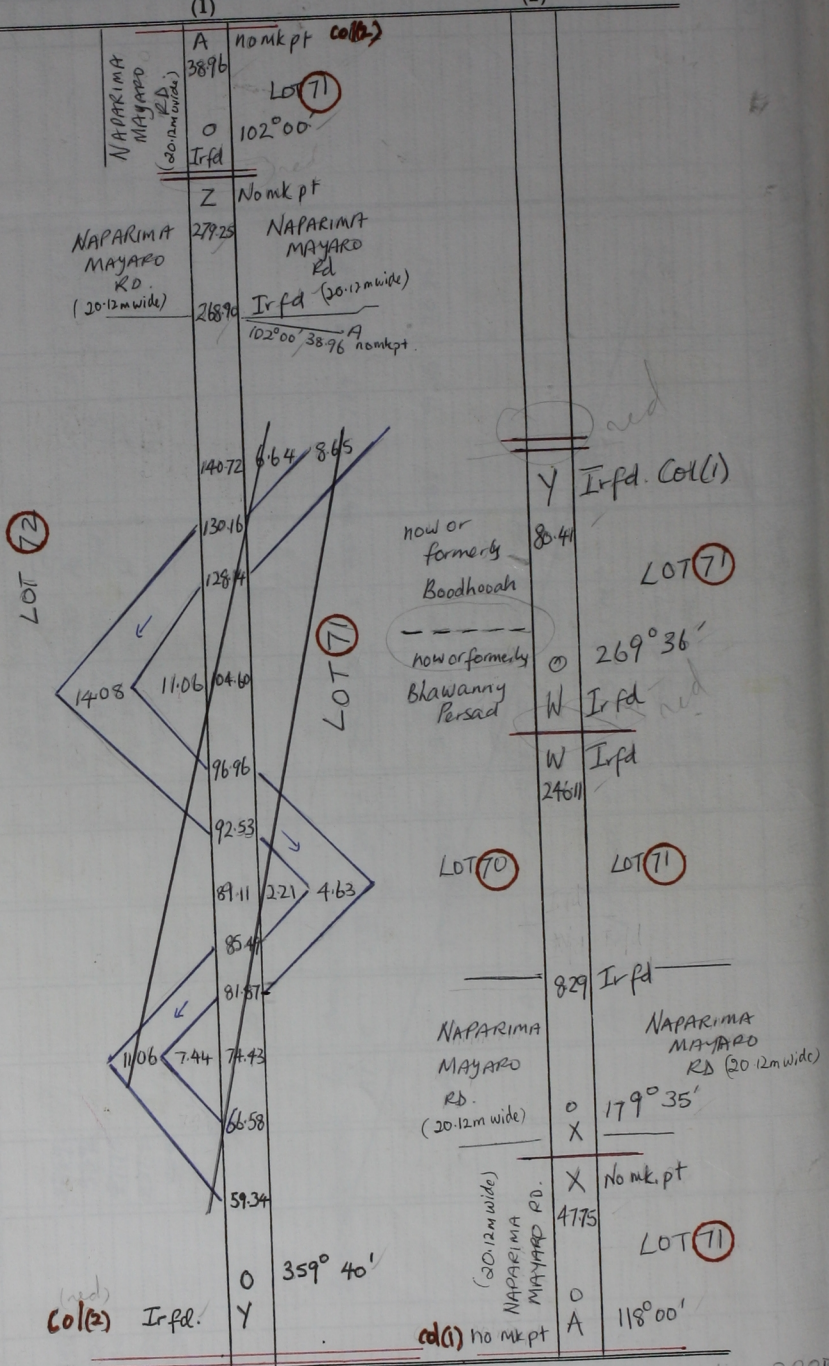 (1)
A no mk pt Col(2)
38.96
NAPARIMA
MAYARO
RD.
(20.12m wide)
LOT 71
O 102°00'
Irfd
Z No mk pt
NAPARIMA
MAYARO
RD.
(20.12m wide)
279.25
NAPARIMA
MAYARO
Rd
(20.12m wide)
268.90 Irfd
102°00' 38.96 A
no mk pt.
140.72 6.64 8.65
130.16
128.14
LOT 72
LOT 71
14.08 11.06 104.60
96.96
92.53
89.11 2.21 4.63
85.49
81.87
11.06 7.44 74.43
66.58
59.34
O 359° 40'
(red)
Col(2) Irfd. Y
red
Y Irfd. Col(1)
80.41
now or
formerly
Boodhooah
LOT 71
now or formerly
Bhawanny
Persad
O 269° 36'
W Irfd
red
W Irfd
246.11
LOT 70 LOT 71
8.29 Irfd
NAPARIMA
MAYARO
RD.
(20.12m wide)
NAPARIMA
MAYARO
RD (20.12m wide)
O 179° 35'
X
X No mk. pt
47.75
(20.12m wide)
NAPARIMA
MAYARO RD.
LOT 71
O
Col(1) no mk pt A 118°00'